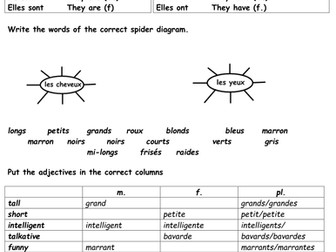 Elles sont They are (f) Elles ont They have (f.)
Write the words of the correct spider diagram.
les cheveux les yeux
longs petits grands roux blonds bleus marron
marron noirs noirs courts verts gris
mi-longs frisés raides
Put the adjectives in the correct columns
m. f. pl.
tall grand grands/grandes
short petite petit/petite
intelligent intelligent intelligente intelligents/
talkative bavarde bavards/bavardes
funny marrant marrants/marrantes